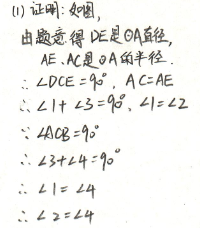 (1) 证明：如图，
由题意得 DE是⊙A直径，
AE、AC是⊙A的半径．
∴ ∠DCE=90°，AC=AE
∴ ∠1+∠3=90°，∠1=∠2
∵ ∠ACB=90°
∴ ∠3+∠4=90°
∴ ∠1=∠4
∴ ∠2=∠4